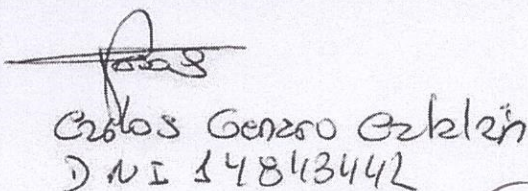 Carlos Genaro Catalán
DNI 14843442